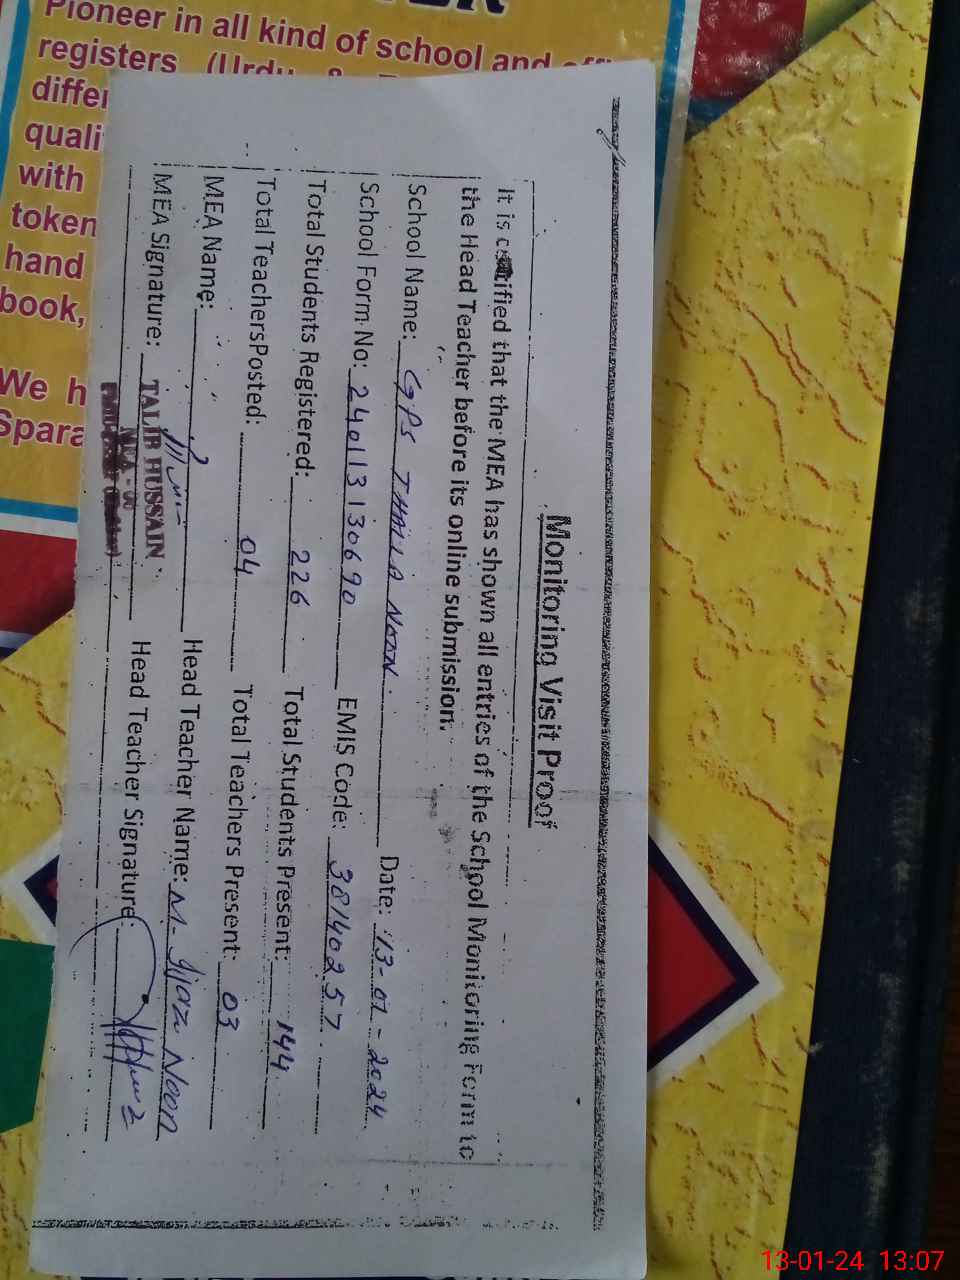 Pioneer in all kind of school and
registers (Urdu &
differ
quali
with
token
hand
book,
We h
Spara
Monitoring Visit Proof
It is certified that the MEA has shown all entries of the School Monitoring Form to
the Head Teacher before its online submission.
School Name: GPS THILLA NOON. Date: 13-01-2024
School Form No: 2401131 30690 EMIS Code: 38140257
Total Students Registered: 226 Total Students Present: 144
Total TeachersPosted: 04 Total Teachers Present: 03
MEA Name: Head Teacher Name: M. Ijaz Noon
MEA Signature: Head Teacher Signature:
TALIB HUSSAIN
13-01-24 13:07